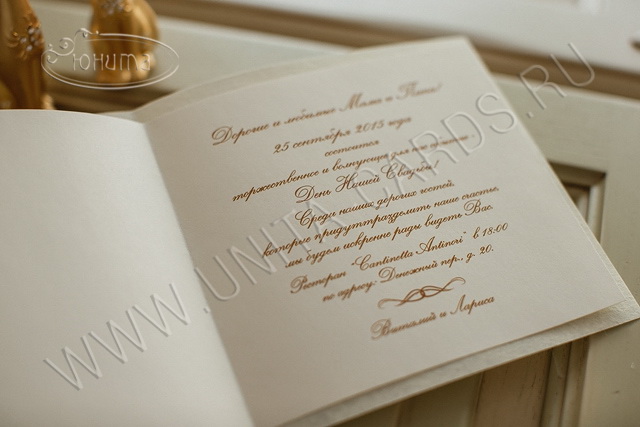 Юнита
Дорогие и любимые Мама и Папа!
25 сентября 2015 года
состоится
торжественное и волнующее для нас событие -
День Нашей Свадьбы!
Среди наших дорогих гостей,
которые придут разделить наше счастье,
мы будем искренне рады видеть Вас.
Ресторан "Cantinetta Antinori" в 18:00
по адресу: Денежный пер. д- 20.
Виталий и Лариса
WWW.UNITA-CARDS.RU